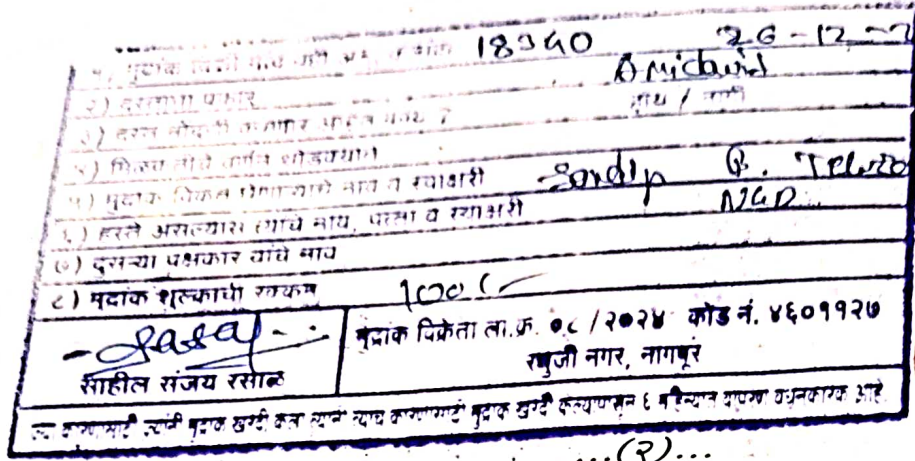 १) मुद्रांक विक्री नोंद वही अनु. क्रमांक 18940 26-12-2
२) दस्ताचा प्रकार Amidavid
३) दस्त नोंदणी करणार आहेत काय ? होय / नाही
४) मिळकतीचे वर्णन थोडक्यात
५) मुद्रांक विकत घेणाऱ्याचे नाव व स्वाक्षरी Sandip
६) हस्ते असल्यास त्यांचे नाव, पत्ता व स्वाक्षरी NGP
७) दुसऱ्या पक्षकार यांचे नाव
८) मुद्रांक शुल्काची रक्कम 100/-
साहील संजय रसाळ
मुद्रांक विक्रेता ला.क्र. ०८ / २०२४ कोड नं. ४६०११२७
रघुजी नगर, नागपूर
ज्या कारणासाठी ज्यांनी मुद्रांक खरेदी केला त्यांनी त्याच कारणासाठी मुद्रांक खरेदी केल्यापासून ६ महिन्यात वापरणे बंधनकारक आहे.
...(२)...